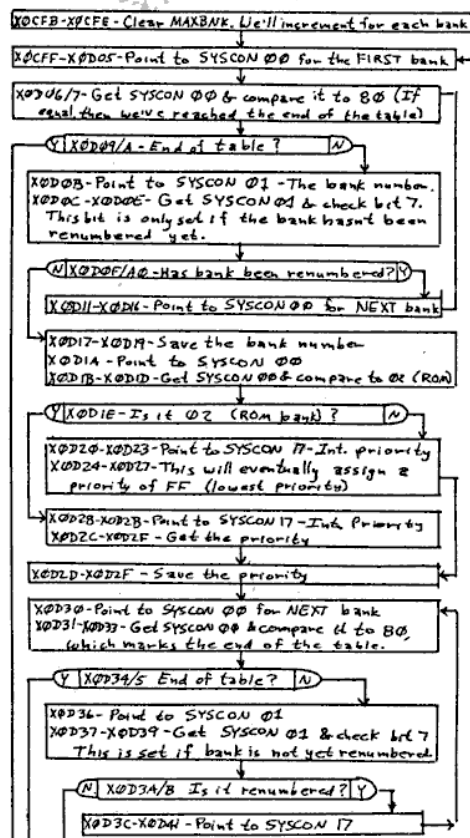 XØCFB-XØCFE - Clear MAXBNK. We'll increment for each bank
XØCFF-XØDØ5-Point to SYSCON ØØ for the FIRST bank
XØDØ6/7-Get SYSCON ØØ & compare it to 8Ø (If
equal, then we've reached the end of the table)
Y XØDØ9/A-End of table? N
XØDØB-Point to SYSCON Ø1 - The bank number.
XØDØC-XØDØE- Get SYSCON Ø1 & check bit 7.
This bit is only set if the bank hasn't been
renumbered yet.
N XØDØF/AØ-Has bank been renumbered? Y
XØD11-XØD16-Point to SYSCON ØØ for NEXT bank
XØD17-XØD19-Save the bank number
XØD1A-Point to SYSCON ØØ
XØD1B-XØD1D-Get SYSCON ØØ & compare to Ø2 (ROM)
Y XØD1E-Is it Ø2 (ROM bank)? N
XØD2Ø-XØD23-Point to SYSCON 17-Int. priority
XØD24-XØD27-This will eventually assign a
priority of FF (lowest priority)
XØD28-XØD2B-Point to SYSCON 17-Int. Priority
XØD2C-XØD2F-Get the priority
XØD2D-XØD2F-Save the priority
XØD3Ø-Point to SYSCON ØØ for NEXT bank
XØD31-XØD33-Get SYSCON ØØ & compare it to 8Ø,
which marks the end of the table.
Y XØD34/5 End of table? N
XØD36- Point to SYSCON Ø1
XØD37-XØD39- Get SYSCON Ø1 & check bit 7
This is set if bank is not yet renumbered
N XØD3A/B Is it renumbered? Y
XØD3C-XØD41-Point to SYSCON 17